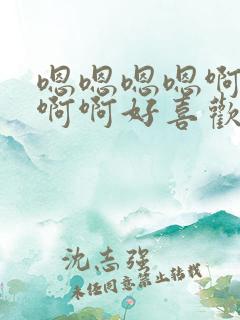 嗯嗯嗯嗯啊
啊啊好喜歡
沈志强
未经同意禁止转载